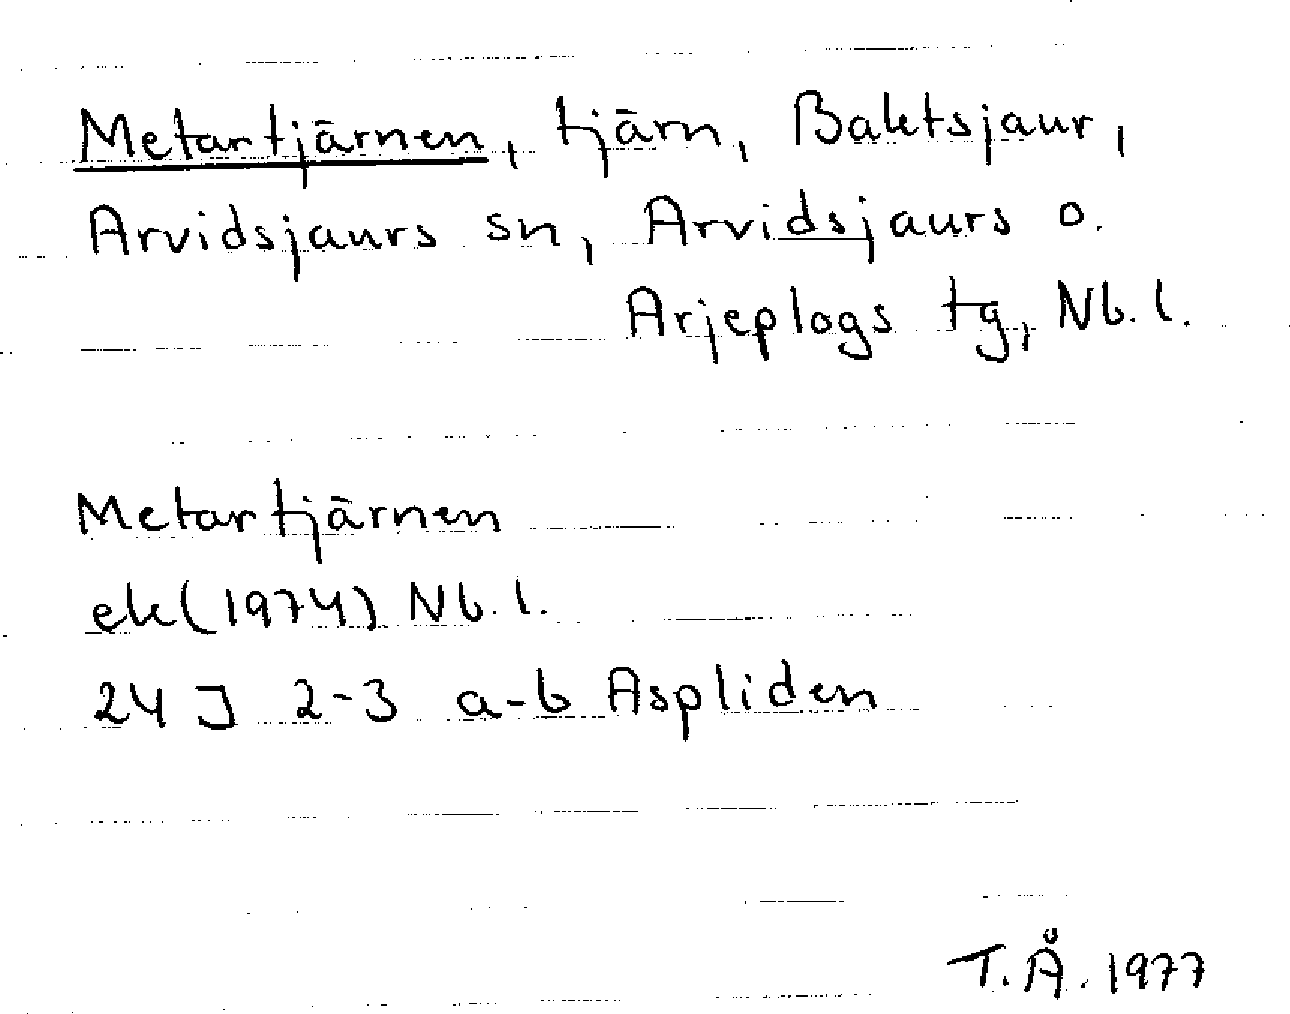 Metartjärnen, tjärn, Baktsjaur,
Arvidsjaurs sn, Arvidsjaurs o.
Arjeplogs tg, Nb. l.
Metartjärnen
ek (1974) Nb. l.
24 J 2-3 a-b Aspliden
T. Å. 1977